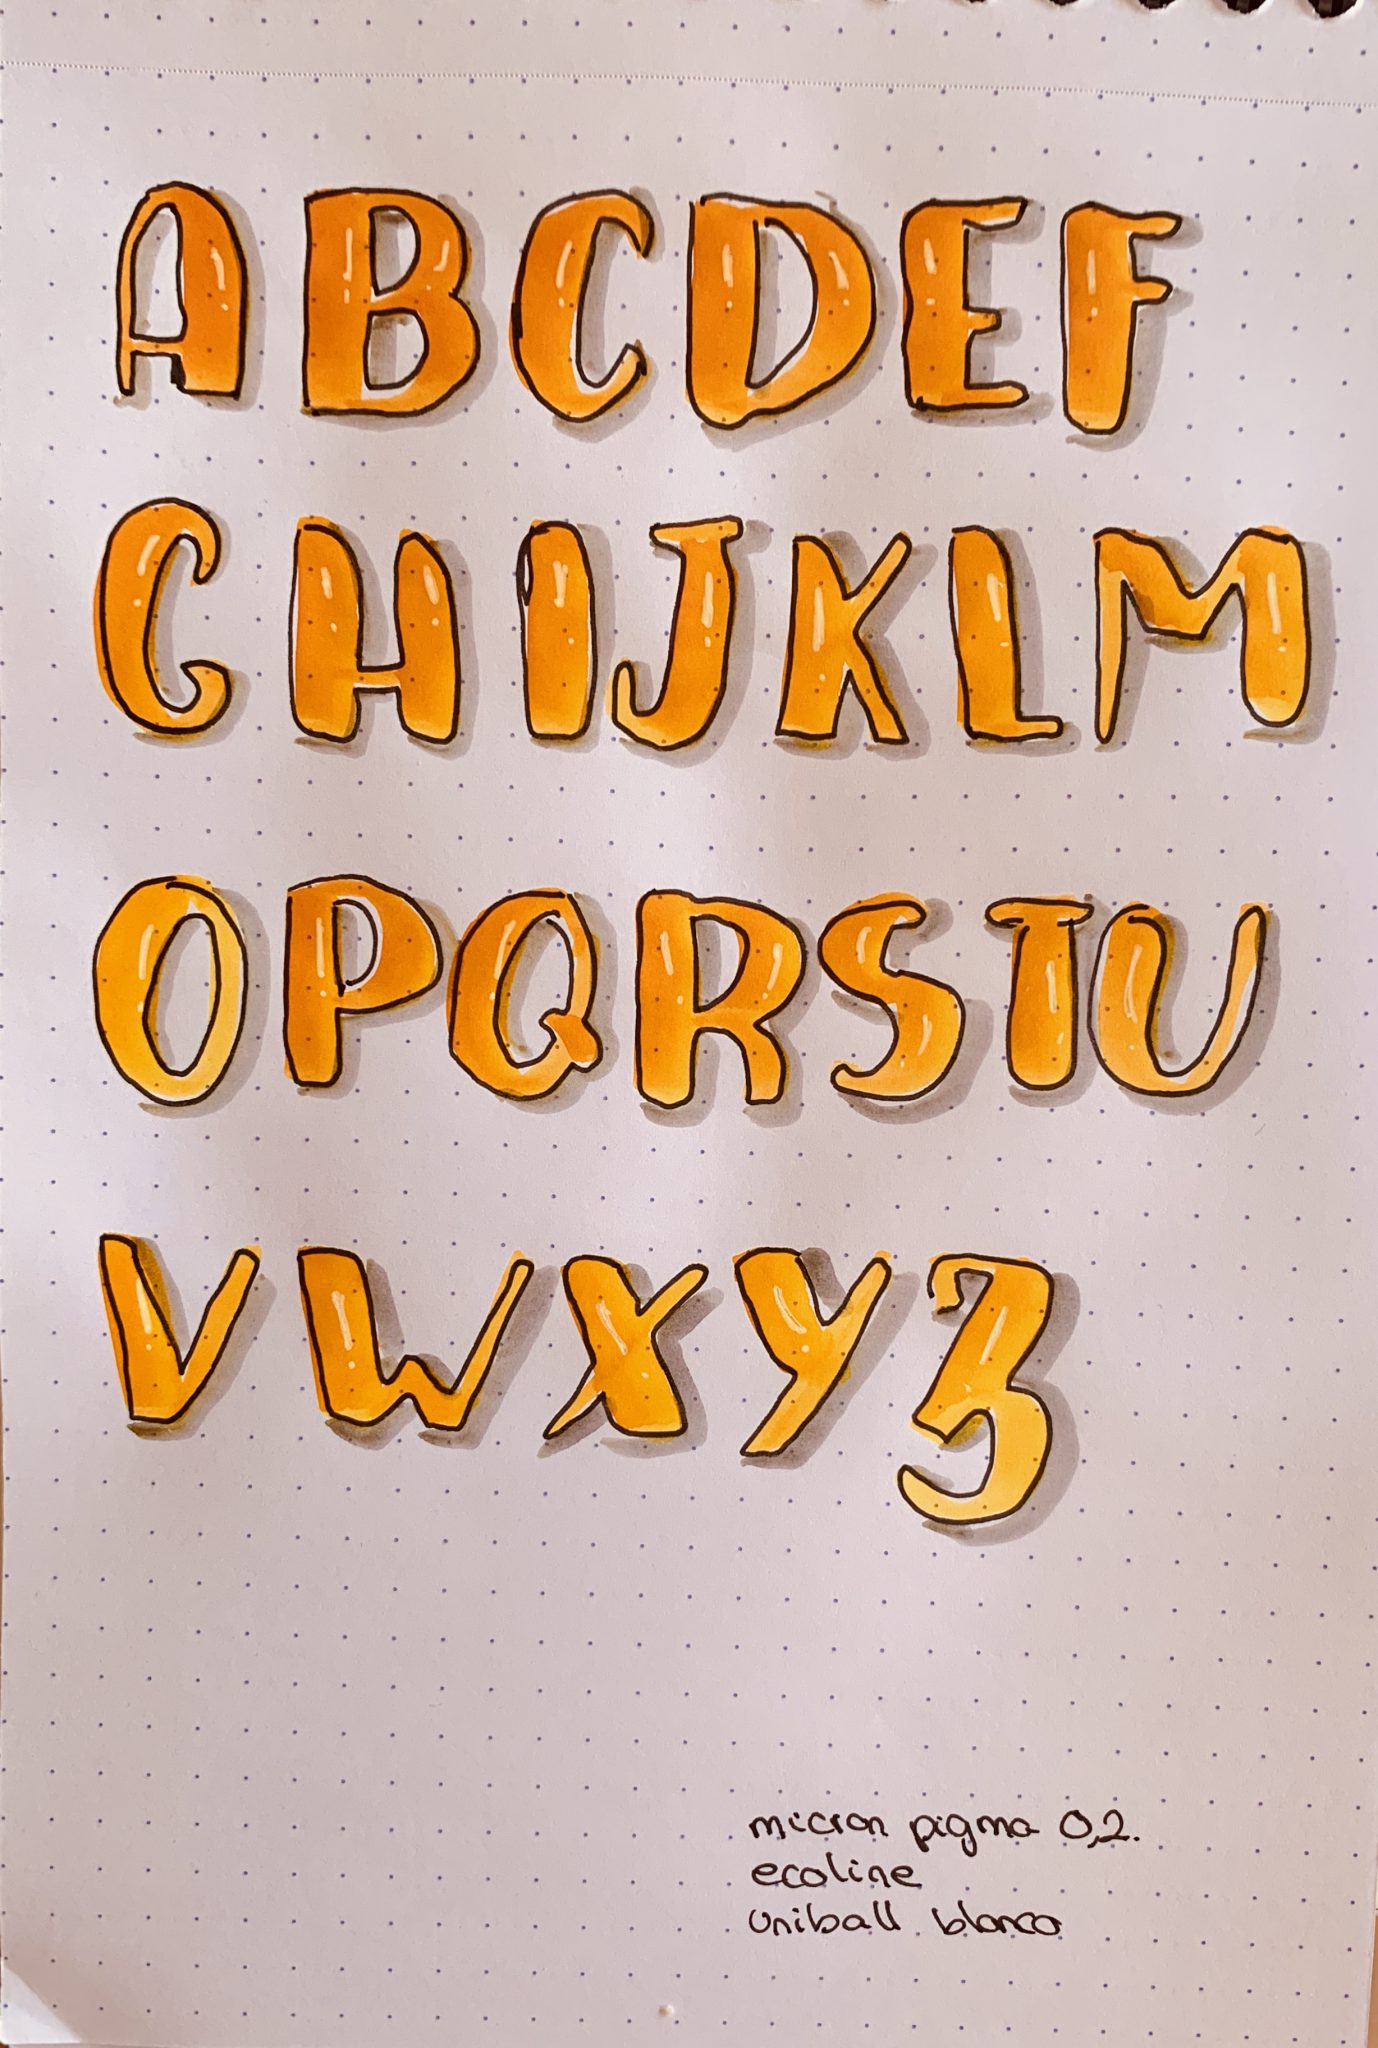 ABCDEF
GHIJKLM
OPQRSTU
VWXYZ
micron pigma 0,2.
ecoline
uniball blanco